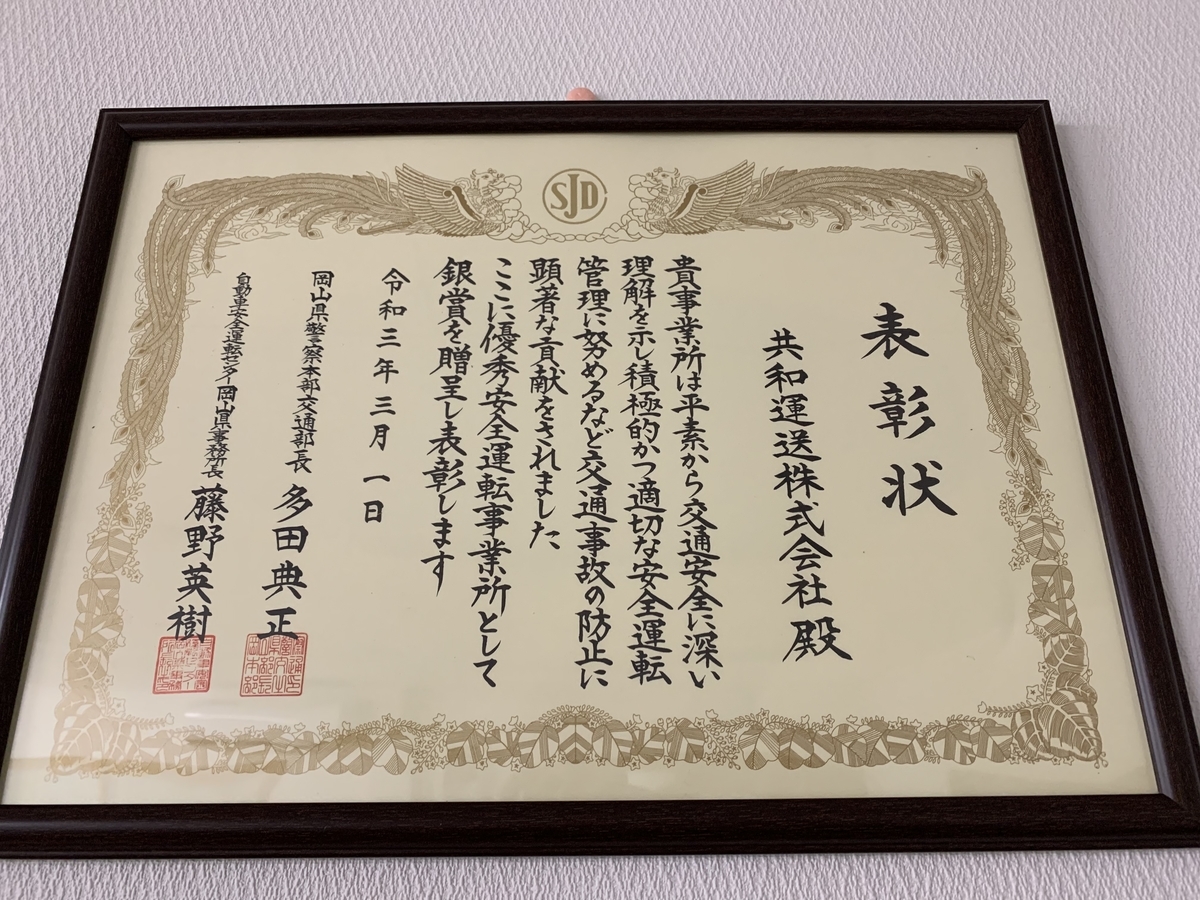 SJD
表彰状
共和運送株式会社殿
貴事業所は平素から交通安全に深い
理解を示し積極的かつ適切な安全運転
管理に努めるなど交通事故の防止に
顕著な貢献をされました
ここに優秀安全運転事業所として
銀賞を贈呈し表彰します
令和三年三月一日
岡山県警察本部交通部長 多田典正
自動車安全運転センター岡山県事務所長 藤野英樹